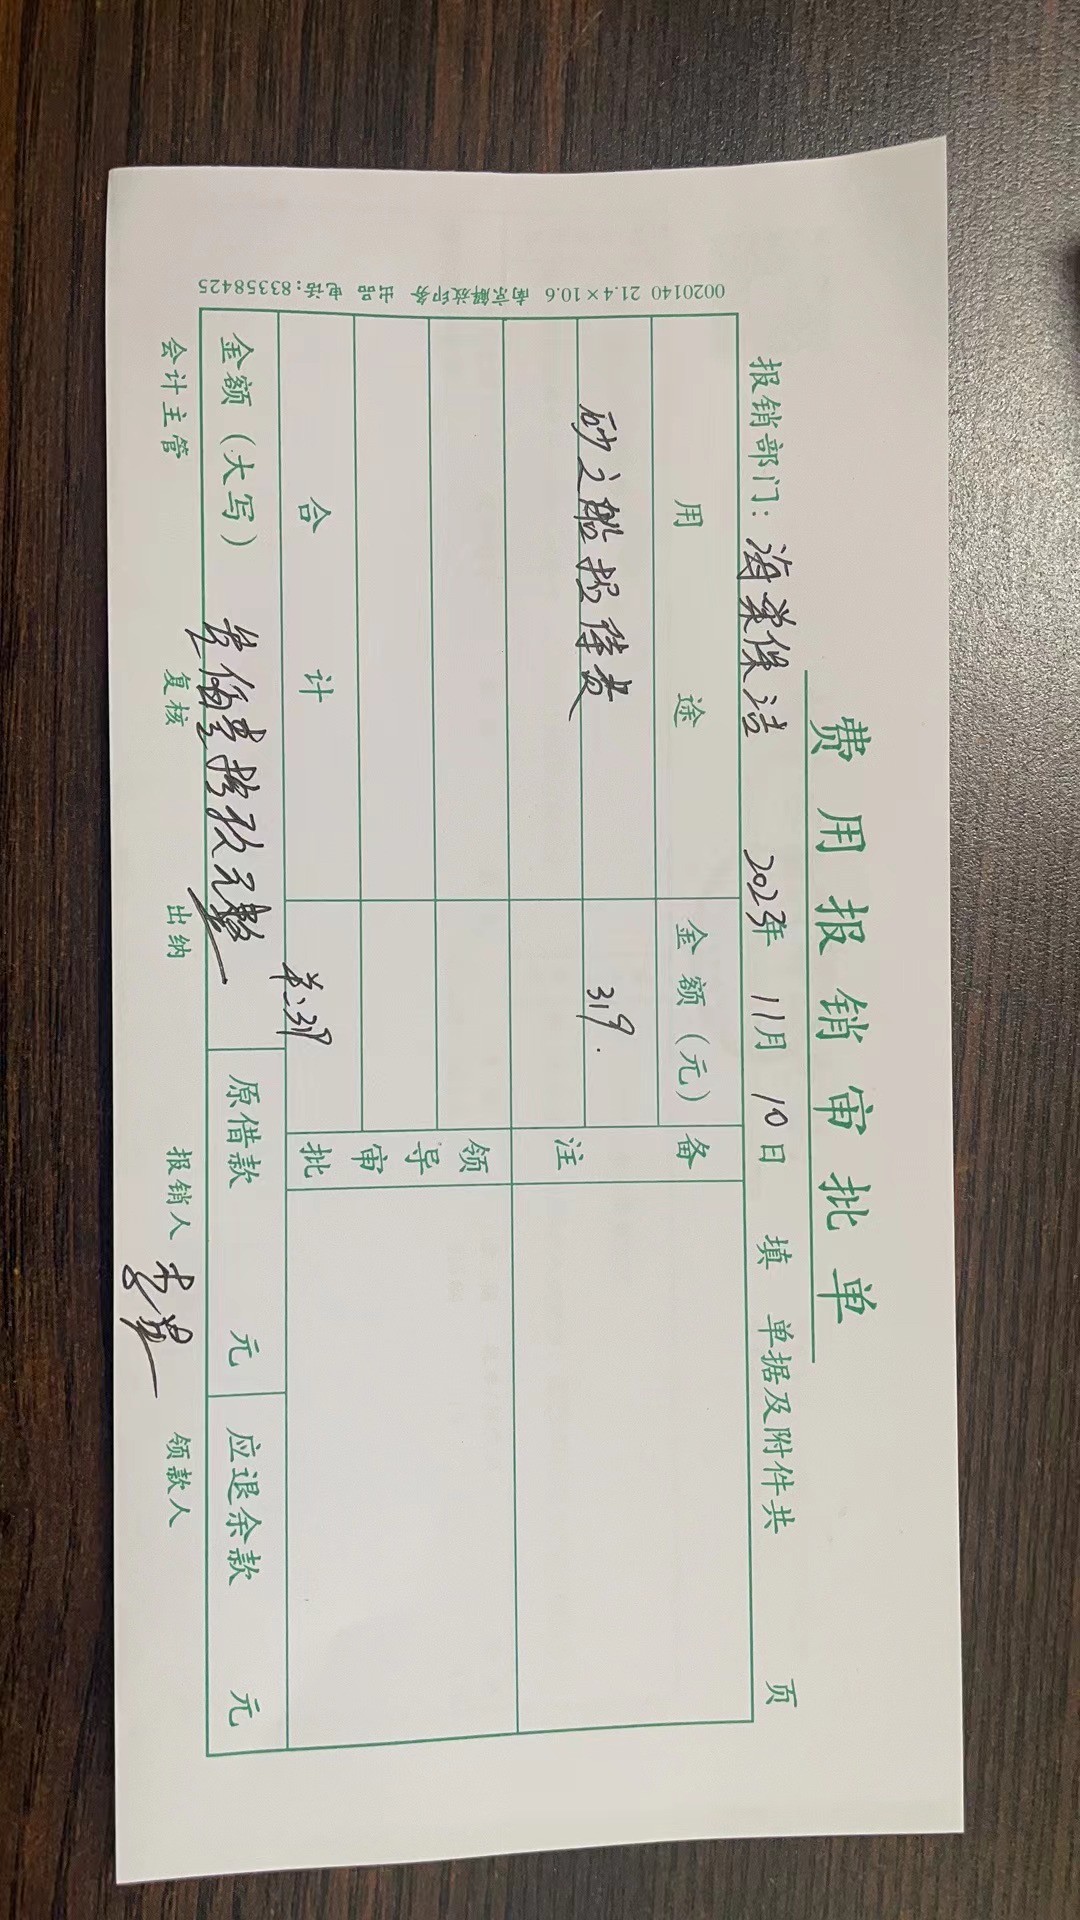 费用报销审批单
报销部门：海荣保洁 2023年 11月 10日 填 单据及附件共 页
用途 金额（元） 备注
砂之船 费 319.
合计 319 领导审批
金额（大写） 叁佰壹拾玖元整 原借款 元 应退余款 元
会计主管 复核 出纳 报销人 领款人
0020140 21.4×10.6 南京解放印务 出品 电话：83358425